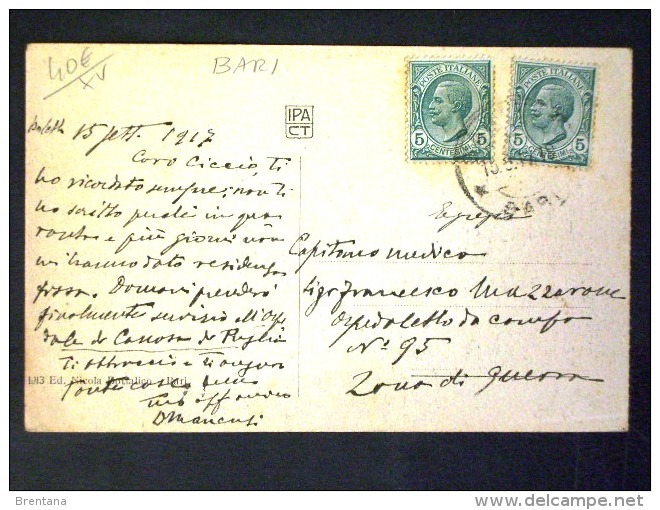 40€
XV
BARI
POSTE ITALIANE
5 5
CENTESIMI
POSTE ITALIANE
5 5
CENTESIMI
IPA
CT
BARI
Barletta 15 sett. 1917
Caro Ciccio, ti
ho ricordato sempre; non ti
ho scritto perché in qua
ranta e più giorni non
mi hanno dato residenza
fissa. Domani prenderò
finalmente servizio all'Ospe
dale di Canosa di Puglia
Ti abbraccio e ti auguro
tante cose
Tuo aff
D Mancusi
1913 Ed. Nicola - Bari
Egregio
Capitano medico
Sigr Francesco Mazzarone
Ospedaletto da campo
No 95
Zona di Guerra
Brentana
delcampe.net